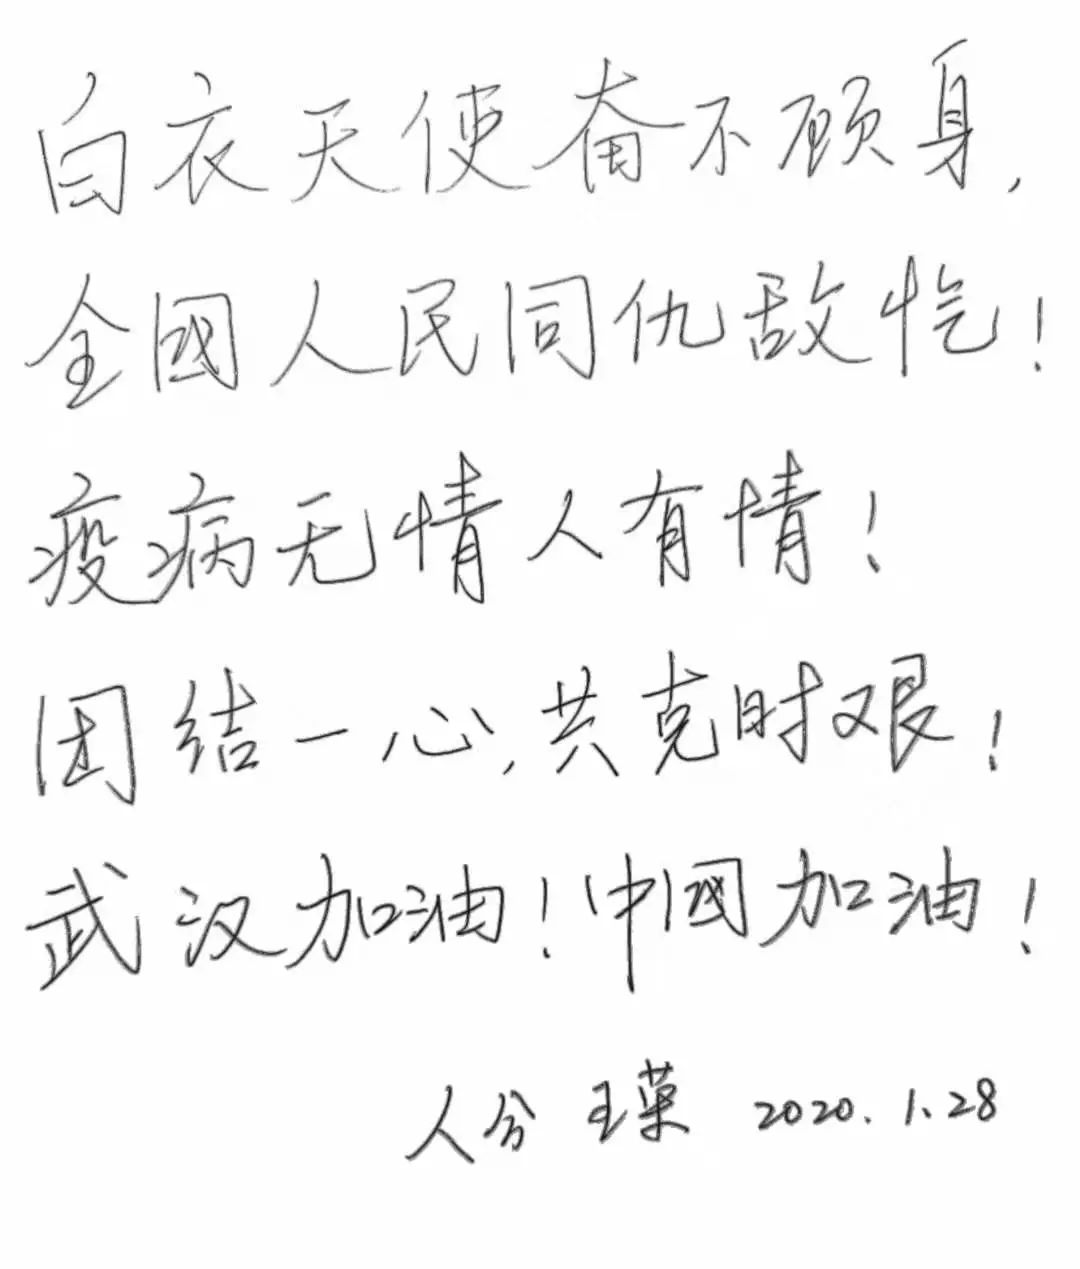 白衣天使奋不顾身,
全國人民同仇敌忾!
疫病无情人有情!
团结一心,共克时艰!
武汉加油!中國加油!
人分 王菜 2020.1.28